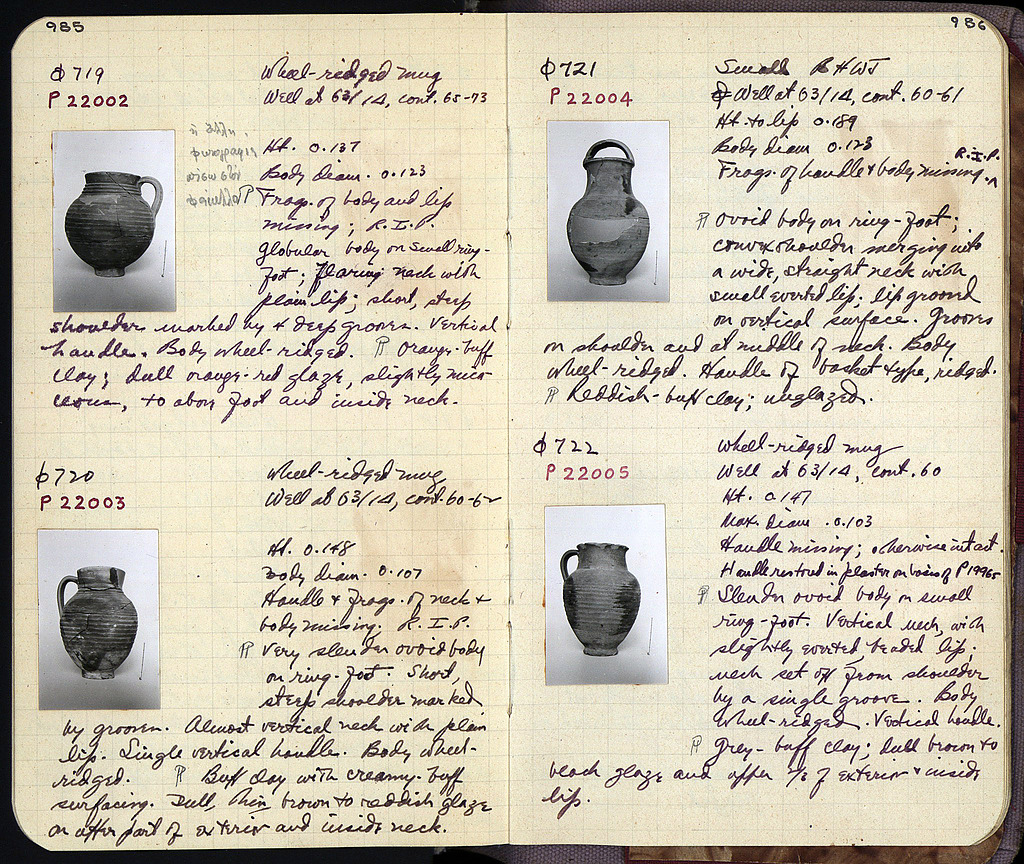 985
φ 719
P 22002
Wheel-ridged mug
Well at 63/14, cont. 65-73
Ht. 0.137
Body diam. 0.123
Frags. of body and lip
missing; R.I.P.
Globular body on small ring-
foot; flaring neck with
plain lip; short, steep
shoulder marked by 4 deep grooves. Vertical
handle. Body wheel-ridged. ¶ Orange-buff
clay; dull orange-red glaze, slightly mica-
ceous, to above foot and inside neck.
φ 720
P 22003
Wheel-ridged mug
Well at 63/14, cont. 60-62
Ht. 0.148
Body diam. 0.107
Handle & frags. of neck &
body missing. R.I.P.
¶ Very slender ovoid body
on ring-foot. Short,
steep shoulder marked
by grooves. Almost vertical neck with plain
lip. Single vertical handle. Body wheel-
ridged. ¶ Buff clay with creamy-buff
surfacing. Dull, thin brown to reddish glaze
on upper part of exterior and inside neck.
986
φ 721
P 22004
Small RHWJ
Well at 63/14, cont. 60-61
Ht. to lip 0.189
Body diam 0.123
R.I.P.
Frags. of handle & body missing.
¶ Ovoid body on ring-foot;
convex shoulder merging into
a wide, straight neck with
small everted lip. Lip ground
on vertical surface. Grooves
on shoulder and at middle of neck. Body
wheel-ridged. Handle of basket type, ridged.
¶ Reddish-buff clay; unglazed.
φ 722
P 22005
Wheel-ridged mug
Well at 63/14, cont. 60
Ht. 0.147
Max. Diam. 0.103
Handle missing; otherwise intact.
Handle restored in plaster on basis of P 19965
¶ Slender ovoid body on small
ring-foot. Vertical neck, with
slightly everted, beaded lip;
neck set off from shoulder
by a single groove. Body
wheel-ridged. Vertical handle.
¶ Grey-buff clay; dull brown to
black glaze and upper of exterior & inside
lip.